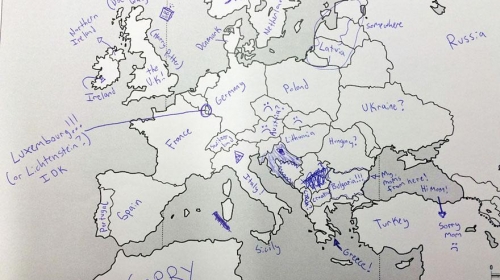 Northern
Ireland
Ireland
(Harry Potter)
the
U.K!
Denmark
Netherla
Somewhere
Latvia
Russia
Germany
Poland
Ukraine?
Luxembourg!!!
(or Lichtenstein?)
IDK
France
Austria?
Lithuania
Hungary?
Italy
Bulgaria!!!
My
mom's
from here!
Hi Mom!
Sorry
mom
:(
Portugal
Spain
Turkey
Greece!
Sicily